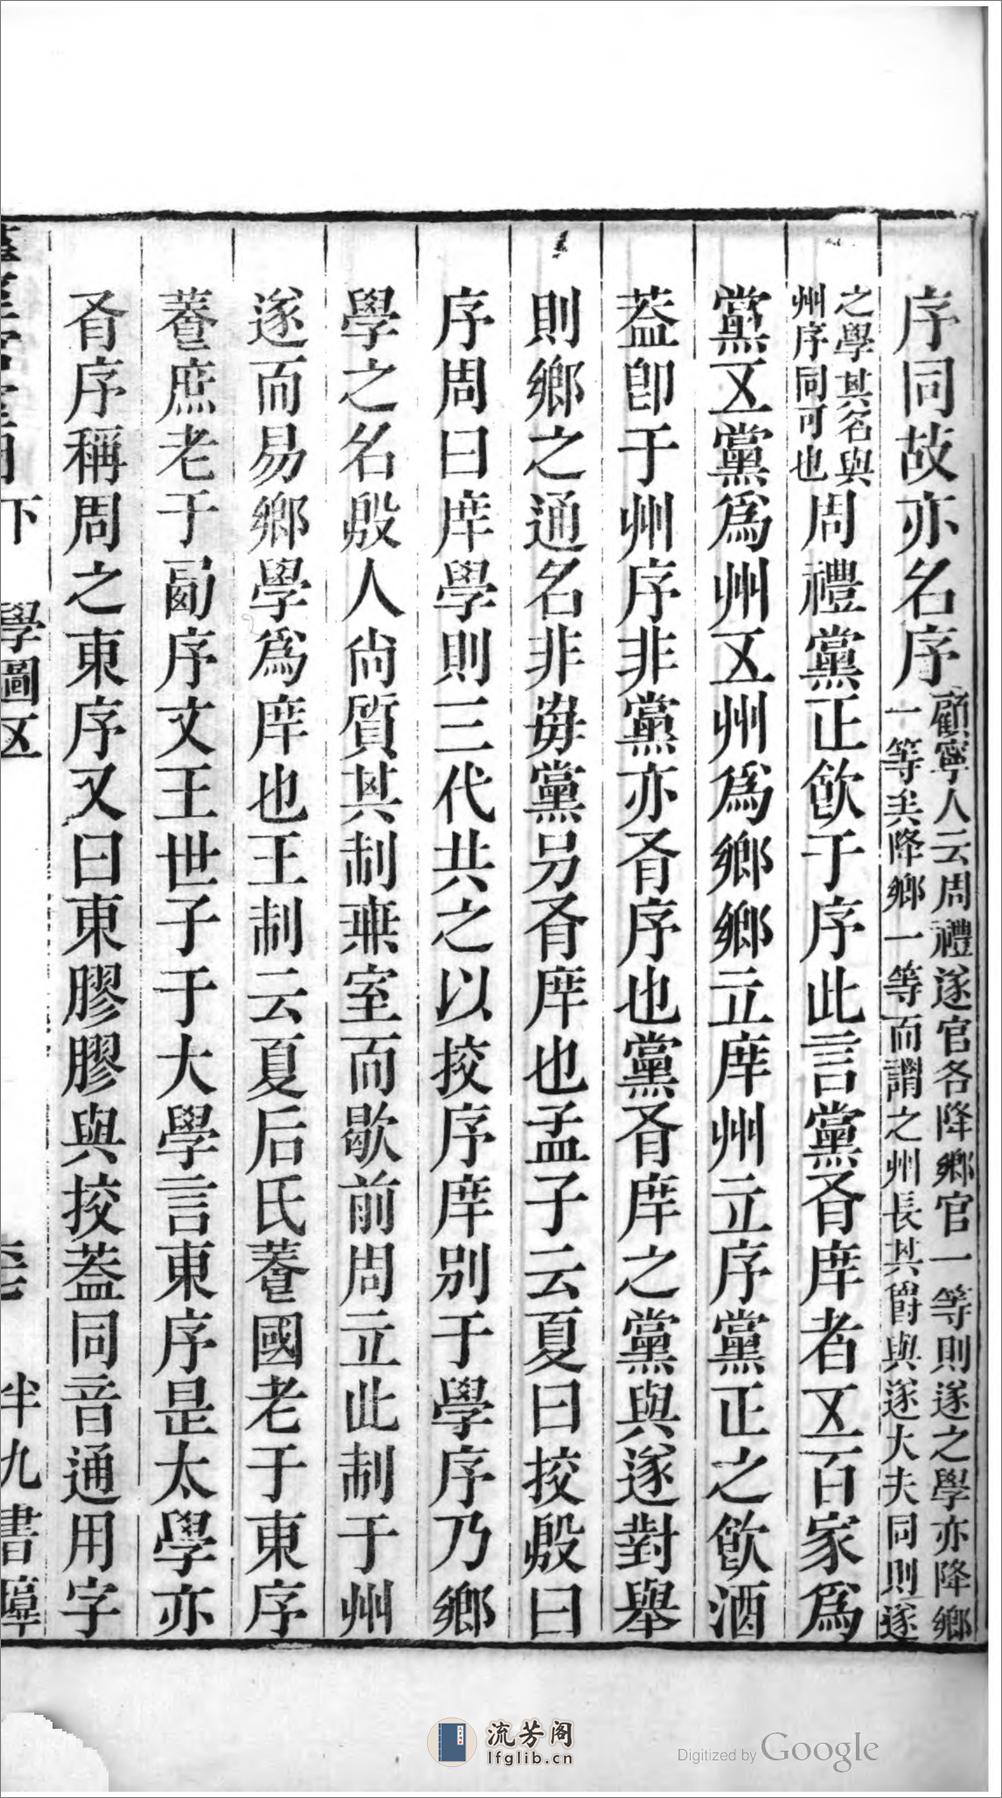 序同故亦名序顧寧人云周禮遂官各降鄉官一等則遂之學亦降鄉
一等矣降鄉一等而謂之州長其爵與遂大夫同則遂
之學其名與
州序同可也周禮黨正飮于序此言黨㞷庠者五百家爲
黨五黨爲州五州爲鄉鄉立庠州立序黨正之飮酒
葢卽于州序非黨亦㞷序也黨㞷庠之黨與遂對舉
則鄉之通名非毎黨另㞷庠也孟子云夏曰挍殷曰
序周曰庠學則三代共之以挍序庠别于學序乃鄉
學之名殷人尙質其制無室而歇前周立此制于州
遂而易鄉學爲庠也王制云夏后氏養國老于東序
養庶老于㔶序文王世子于大學言東序是太學亦
㞷序稱周之東序又曰東膠膠與挍葢同音通用字
下 學圖五 半九書塾
流芳阁
lfglib.cn
Digitized by Google